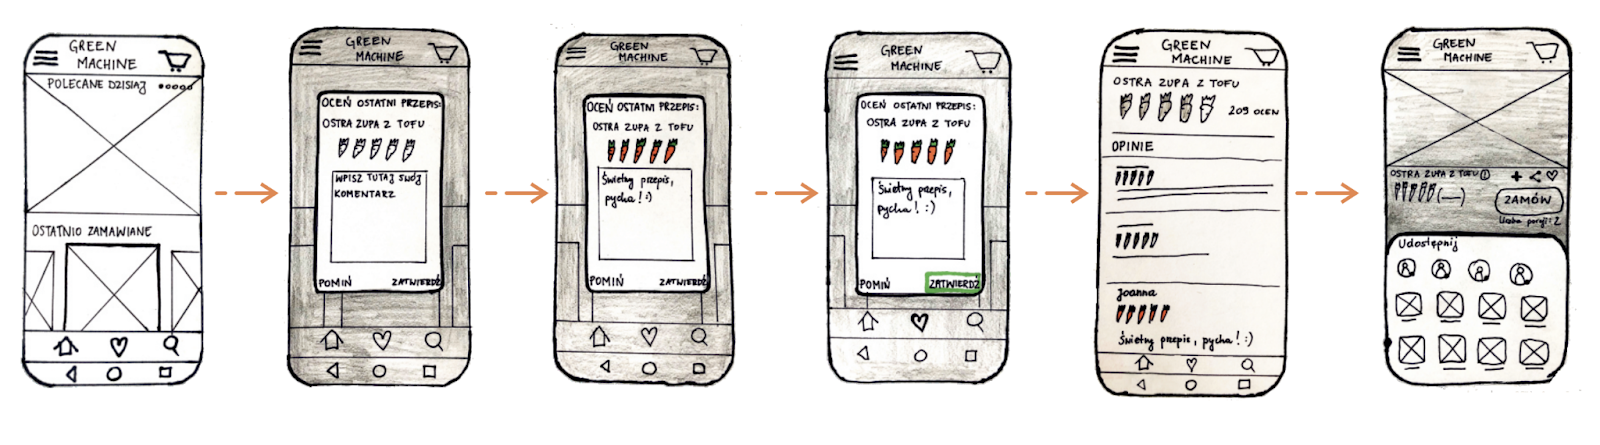 GREEN
MACHINE
POLECANE DZISIAJ
OSTATNIO ZAMAWIANE
GREEN
MACHINE
OCEŃ OSTATNI PRZEPIS:
OSTRA ZUPA Z TOFU
WPISZ TUTAJ SWÓJ
KOMENTARZ
POMIŃ ZATWIERDŹ
GREEN
MACHINE
OCEŃ OSTATNI PRZEPIS:
OSTRA ZUPA Z TOFU
Świetny przepis,
pycha! :)
POMIŃ ZATWIERDŹ
GREEN
MACHINE
OCEŃ OSTATNI PRZEPIS:
OSTRA ZUPA Z TOFU
Świetny przepis,
pycha! :)
POMIŃ ZATWIERDŹ
GREEN
MACHINE
OSTRA ZUPA Z TOFU
209 OCEN
OPINIE
Joanna
Świetny przepis, pycha! :)
GREEN
MACHINE
OSTRA ZUPA Z TOFU
ZAMÓW
Liczba porcji: 2
Udostępnij